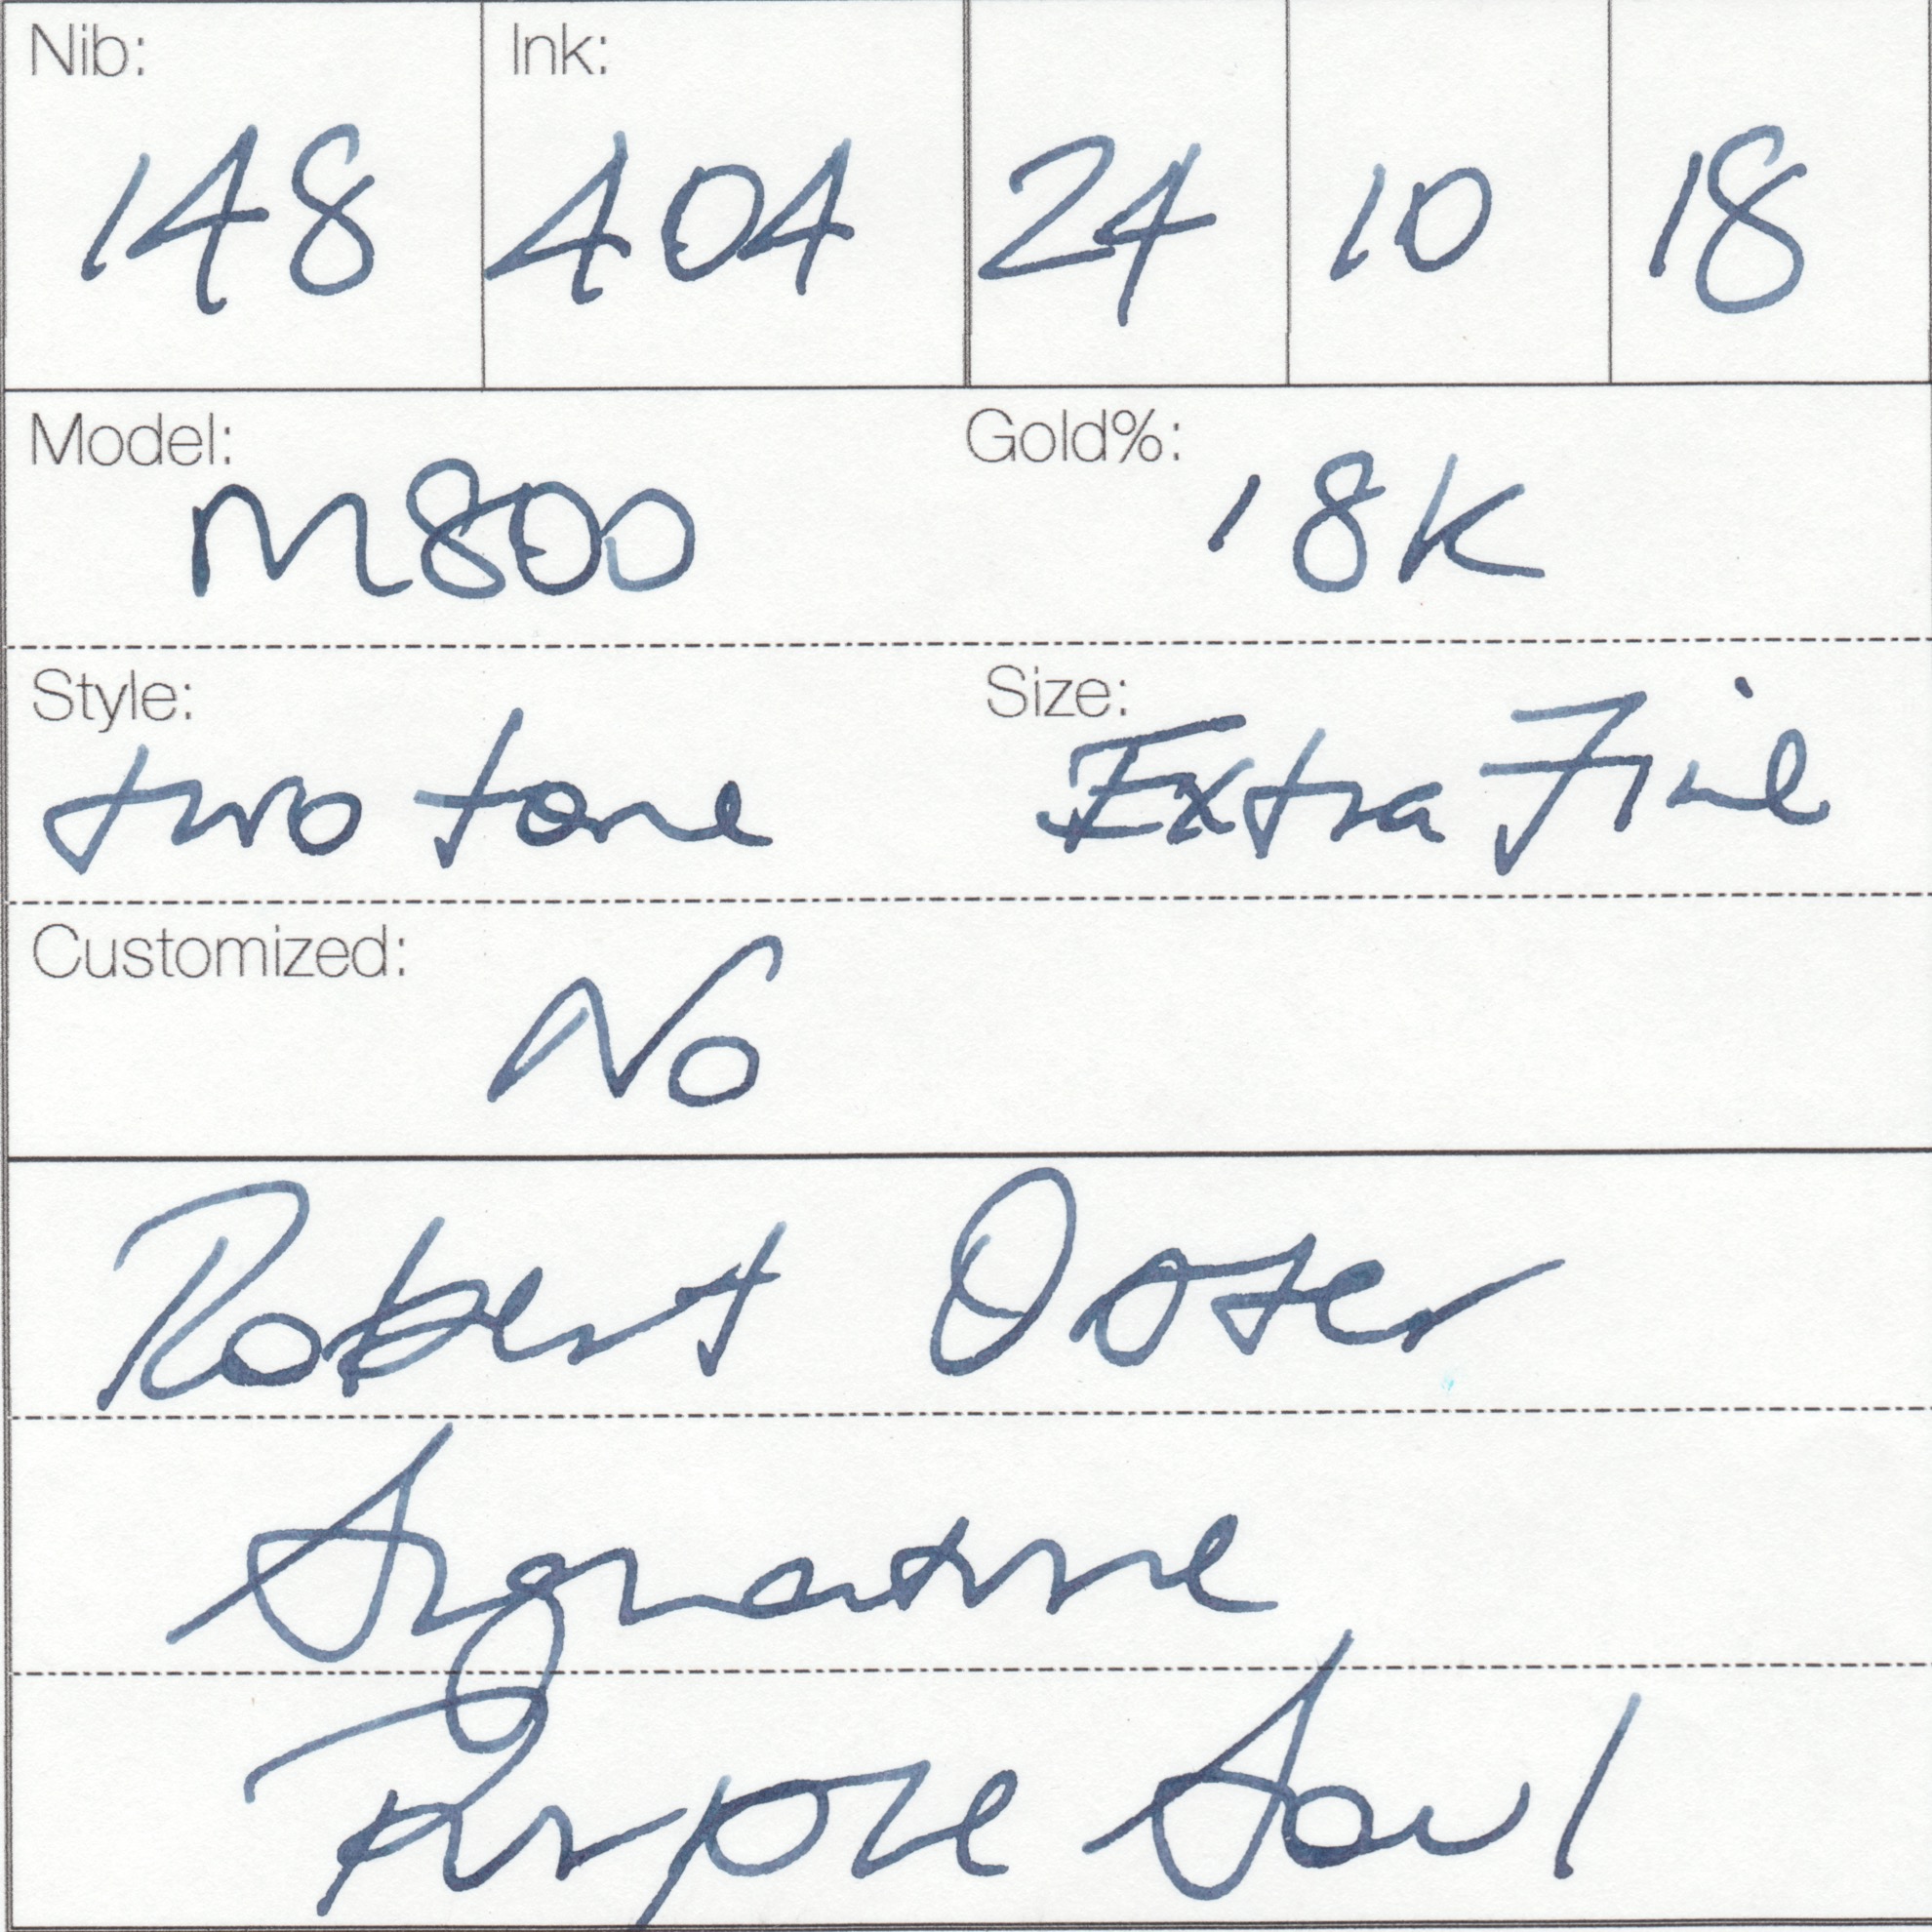 Nib: Ink:
148 404 24 10 18
Model: Gold%:
M800 18K
Style: Size:
two tone Extra Fine
Customized:
No
Robert Oster
Signature
Purple Soul